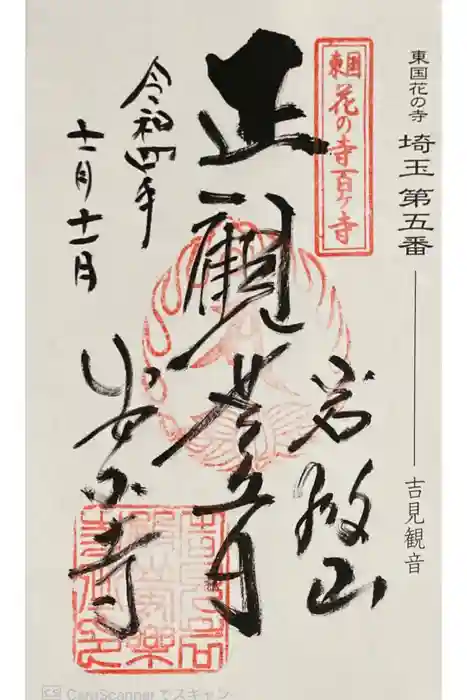 東国花の寺 埼玉 第五番 吉見観音
東国花の寺百ヶ寺
岩殿山
正観世音
安楽寺
令和四年
十一月十一日
CS CamScannerでスキャン